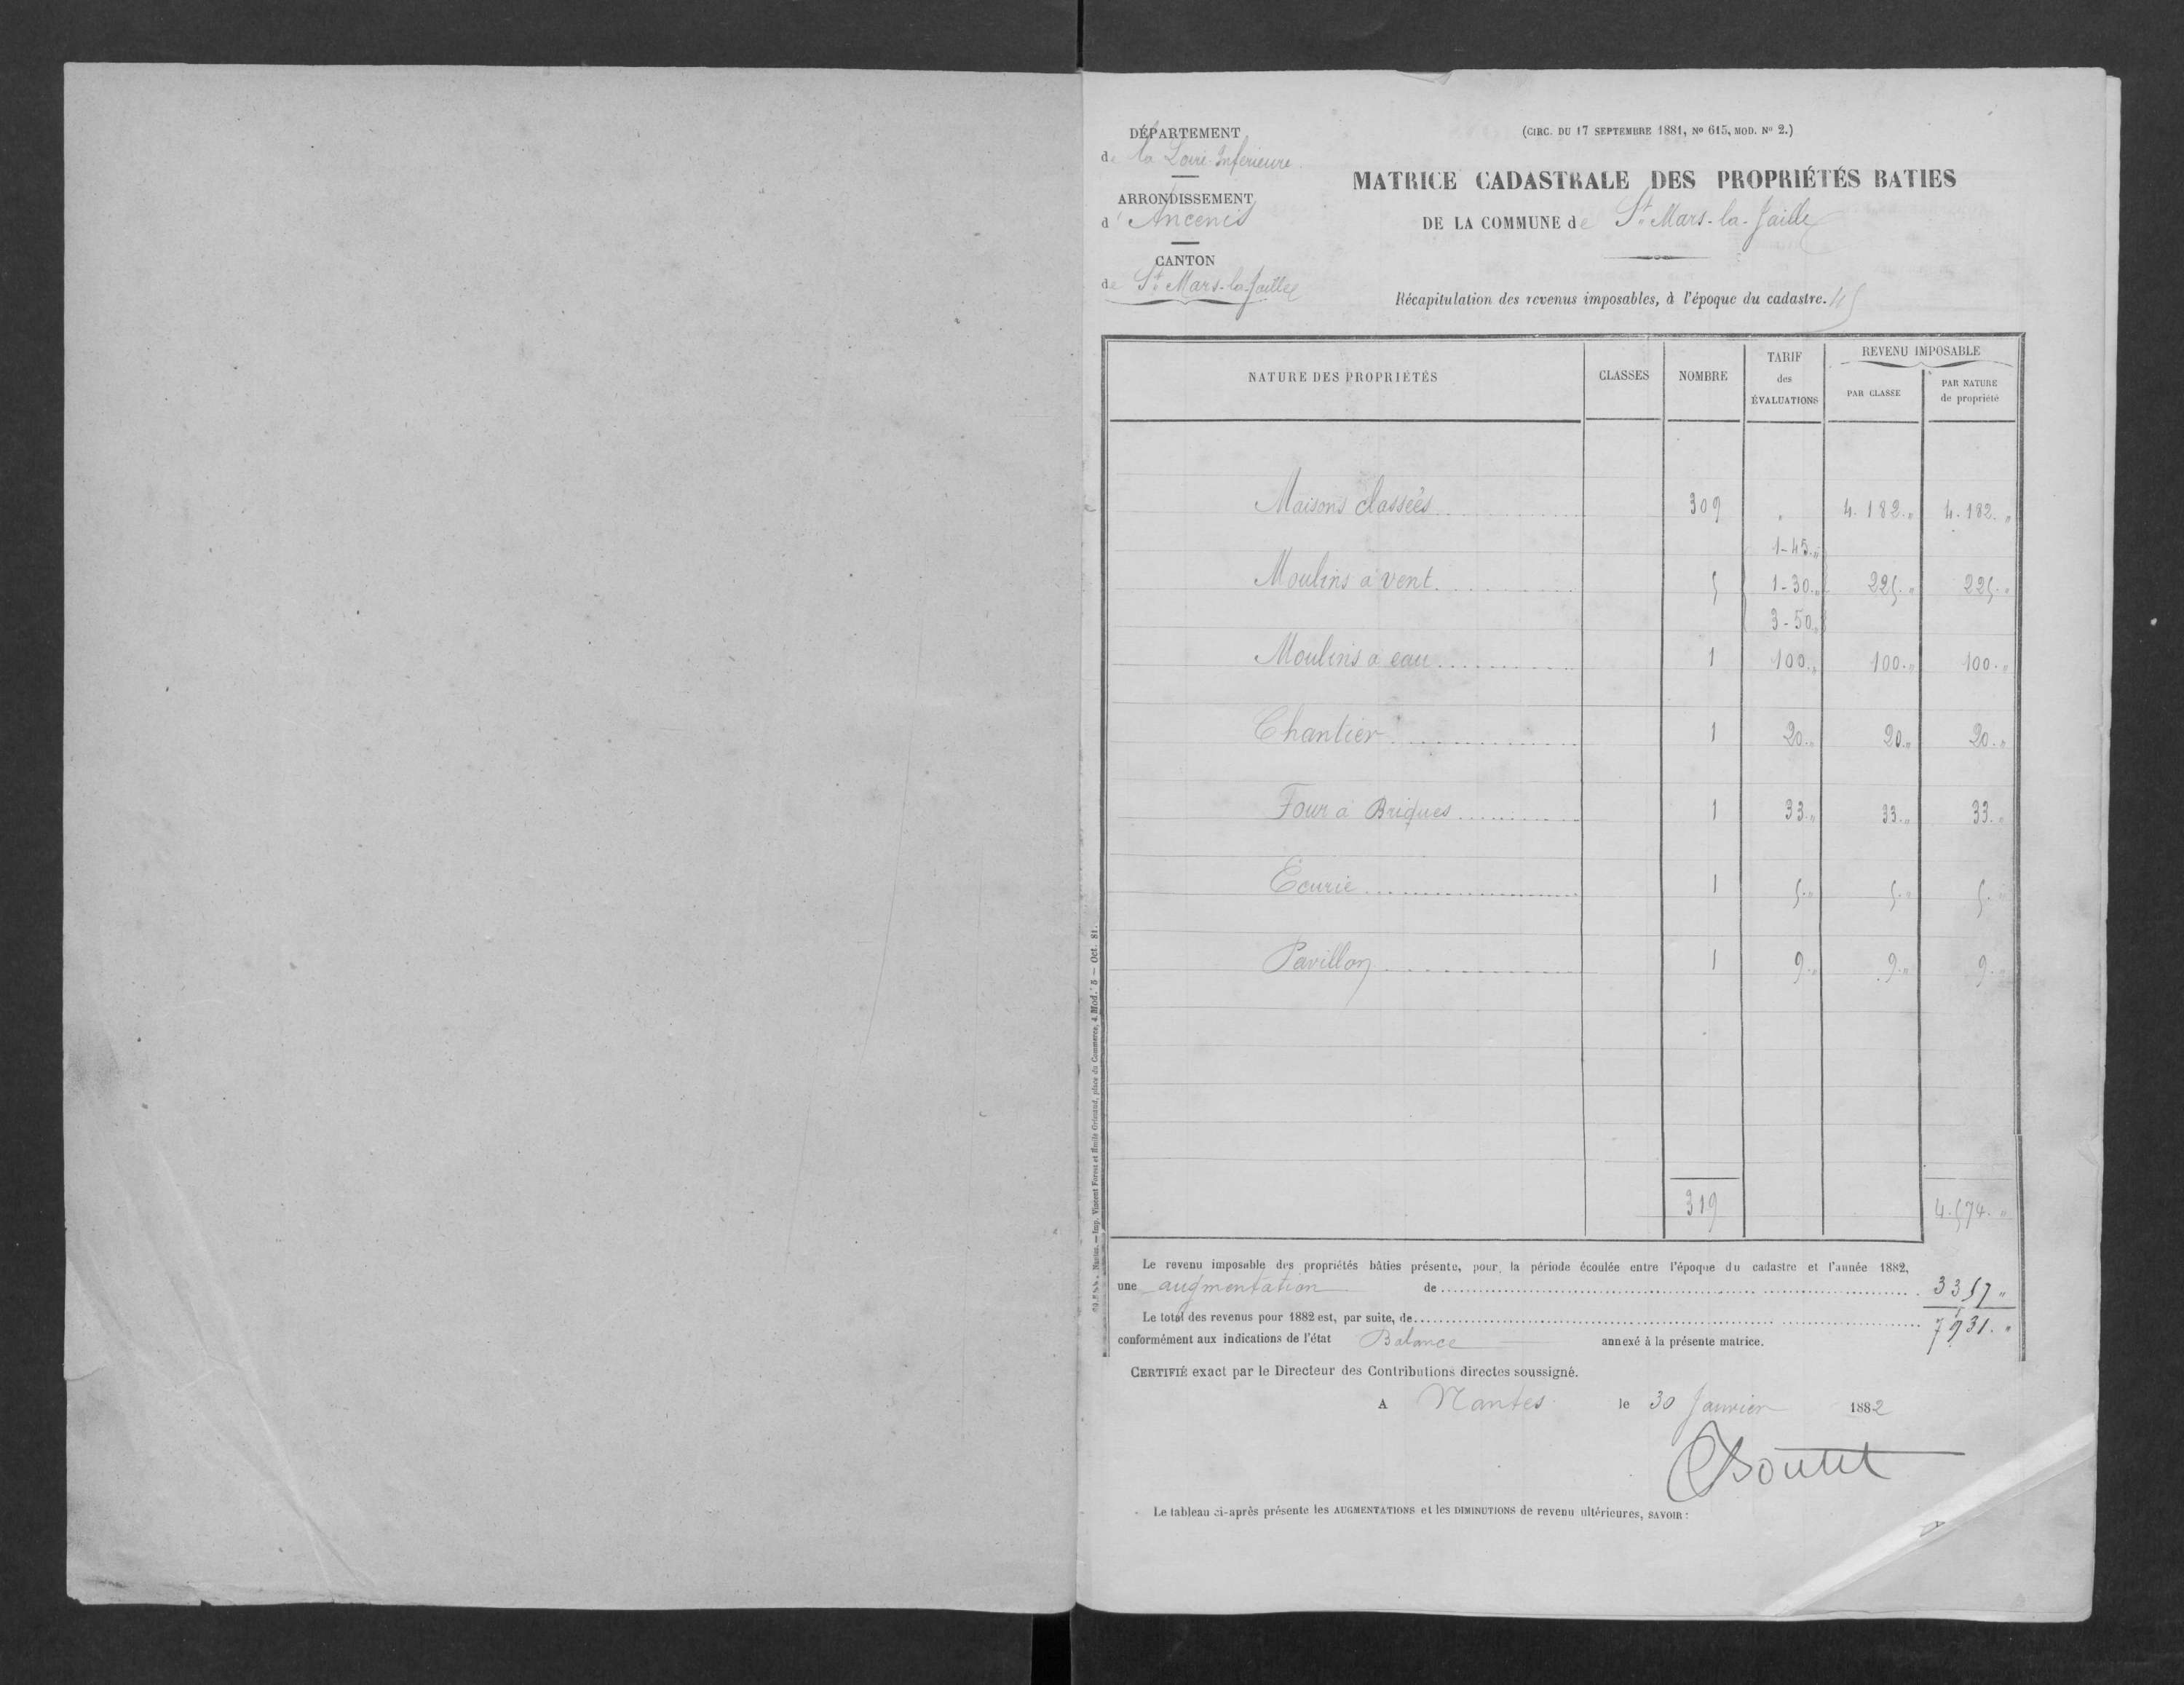 DÉPARTEMENT
de la Loire-Inférieure.
ARRONDISSEMENT
d'Ancenis
CANTON
de St Mars-la-Jaille
(CIRC. DU 17 SEPTEMBRE 1881, No 615, MOD. No 2.)
MATRICE CADASTRALE DES PROPRIÉTÉS BATIES
DE LA COMMUNE de St Mars-la-Jaille
Récapitulation des revenus imposables, à l'époque du cadastre.
NATURE DES PROPRIÉTÉS CLASSES NOMBRE TARIF des ÉVALUATIONS REVENU IMPOSABLE PAR CLASSE PAR NATURE de propriété
Maisons classées 309 " 4.182." 4.182."
1-45."
Moulins à vent 5 1-30." 225." 225."
3-50."
Moulins à eau 1 100." 100." 100."
Chantier 1 20." 20." 20."
Four à Briques 1 33." 33." 33."
Ecurie 1 5." 5." 5."
Pavillon 1 9." 9." 9."
319 4.574."
Le revenu imposable des propriétés bâties présente, pour la période écoulée entre l'époque du cadastre et l'année 1882,
une augmentation de 3357 "
Le total des revenus pour 1882 est, par suite, de 7931."
conformément aux indications de l'état Balance annexé à la présente matrice.
CERTIFIÉ exact par le Directeur des Contributions directes soussigné.
A Nantes le 30 Janvier 1882
Boutet
Le tableau ci-après présente les AUGMENTATIONS et les DIMINUTIONS de revenu ultérieures, SAVOIR :
Nantes. — Imp. Vincent Forest et Emile Grimaud, place du Commerce, 4. Mod. 5 — Oct. 81.